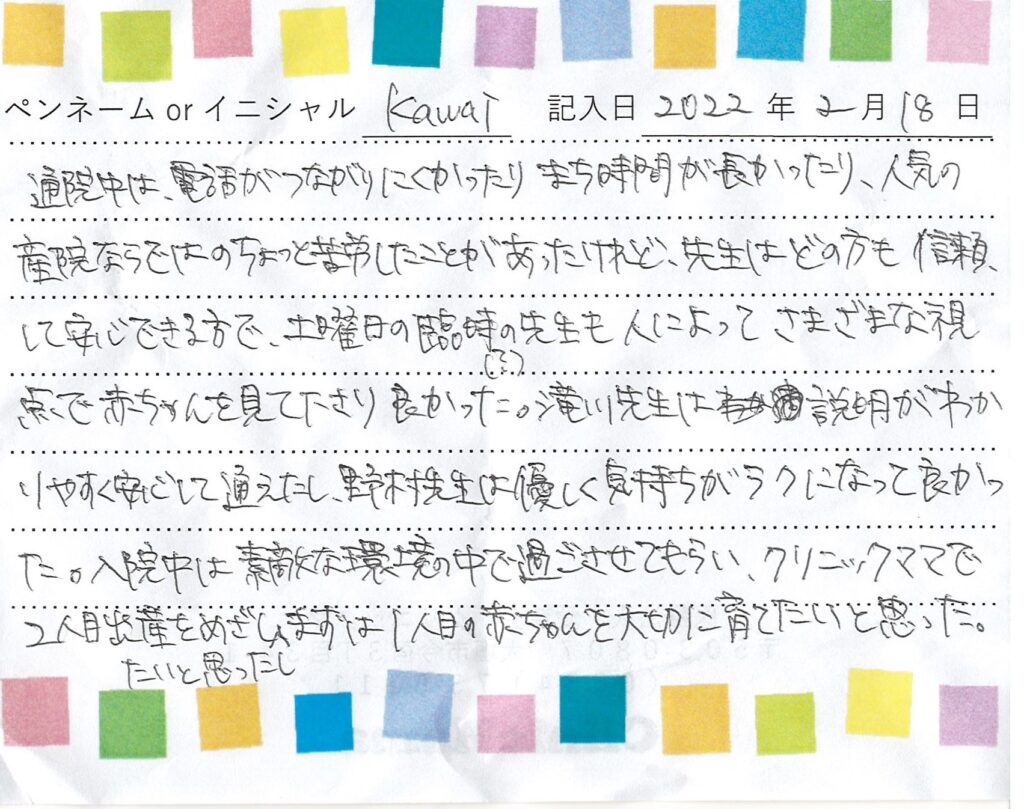 ペンネーム or イニシャル Kawai 記入日 2022 年 2 月 18 日
通院中は、電話がつながりにくかったり まち時間が長かったり、人気の
産院ならではのちょっと苦労したことがあったけれど、先生はどの方も 信頼
して安心できる方で、土曜日の臨時の先生も 人によって さまざまな視
(?)
点で赤ちゃんを見て下さり 良かった。滝川先生は 説明がわか
りやすく安心して通えたし、野村先生は優しく 気持ちがラクになって良かっ
た。入院中は素敵な環境の中で過ごさせてもらい、クリニックママで
2人目出産をめざし、まずは1人目の赤ちゃんを大切に育てたいと思った。
たいと思ったし